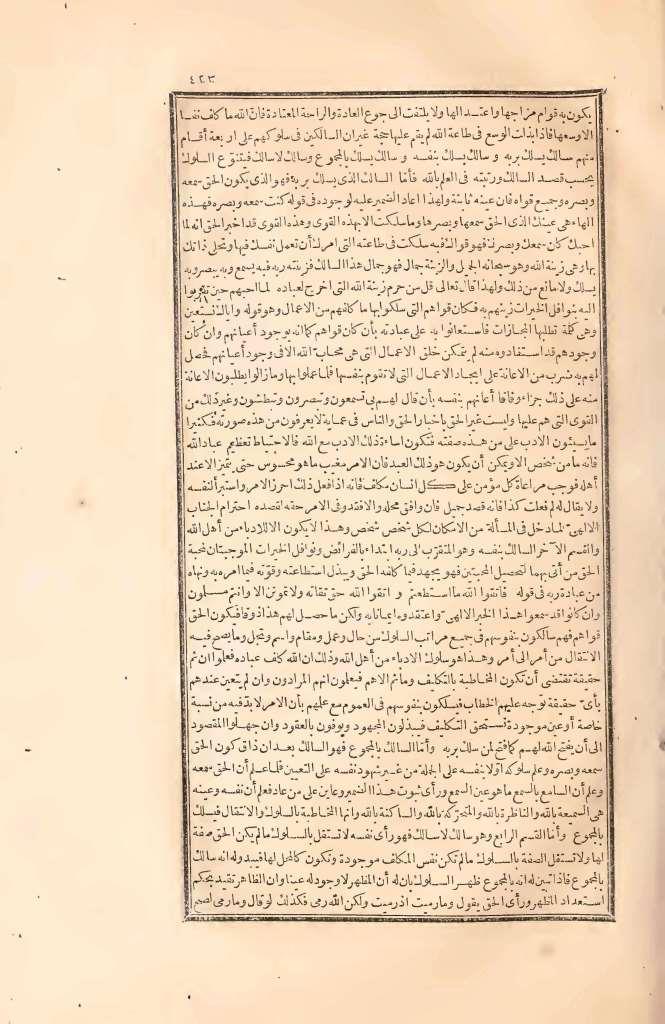 ٤٢٣
يكون به قوام مزاجها واعتدالها ولا يلتفت الى جوع العادة والراحة المعتادة فان الله ما كلف نفسا
الا وسعها فاذا بذلت الوسع فى طاعة الله لم يقم عليها حجة غير ان السالكين فى سلوكهم على اربعة أقسام
منهم سالك يسلك بربه وسالك يسلك بنفسه وسالك يسلك بالمجموع وسالك لا سالك فيتنوع السلوك
بحسب قصد السالك ورتبته فى العلم بالله فأما السالك الذى يسلك بربه فهو الذى يكون الحق سمعه
وبصره وجميع قواه فان عينه ثابتة ولهذا اعاد الضمير عليه لوجوده فى قوله كنت سمعه وبصره فهذه
الهاء هى عينك الذى الحق سمعها وبصرها وما سلكت الا بهذه القوى وهذه القوى قد اخبر الحق انه لما
احبك كان سمعك وبصرك فهو قواك فبه سلكت فى طاعته التى امرك أن تعمل نفسك فيها وتحلى ذاتك
بها وهى زينة الله وهو سبحانه الجميل والزينة جمال فهو جمال هذا السالك فزينته ربه فبه يسمع وبه يبصر وبه
يسلك ولا مانع من ذلك ولهذا قال تعالى قل من حرم زينة الله التى اخرج لعباده لما احبهم حين تقربوا
اليه بنوافل الخيرات زينهم به فكان قواهم التى سلكوا بها ما كلفهم من الاعمال وهو قوله واياك نستعين
وهى كلمة تطلبها المجازات فاستعانوا به على عبادته بأن كان قواهم كما انه بوجود أعيانهم وان كان
وجودهم قد استفادوه منه لم يتمكن خلق الاعمال التى هى محاب الله الا فى وجود أعيانهم فحصل
لهم به ضرب من الاعانة على ايجاد الاعمال التى لا تقوم بنفسها فلما عملوا بها وما زالوا يطلبون الاعانة
منه على ذلك جزاء وفاقا أعانهم بنفسه بأن قال لهم بى تسمعون وتبصرون وتبطشون وغير ذلك من
القوى التى هم عليها وليست غير الحق باخبار الحق والناس فى عماية لا يعرفون من هذه صورته فكثيرا
ما يسيئون الادب على من هذه صفته فتكون اساءة ذلك الادب مع الله فالاحتياط تعظيم عباد الله
فانه ما من شخص الا ويمكن أن يكون هو ذلك العبد فان الامر مغيب ما هو محسوس حتى يتميز الا عند
أهله فوجب مراعاة كل مؤمن على كل انسان مكلف فانه اذا فعل ذلك احرز الامر واستبرأ لنفسه
ولا يقال له لم فعلت كذا فانه قصد جميل فان وافق محله والا فقد وفى الامر حقه لقصده احترام الجناب
الالهى لما دخل فى المسألة من الامكان لكل شخص شخص وهذا لا يكون الا للادباء من أهل الله
والقسم الآخر السالك بنفسه وهو المتقرب الى ربه ابتداء بالفرائض ونوافل الخيرات الموجبتان لمحبة
الحق من أتى بهما لتحصيل المحبتين فهو يجهد فيما كلفه الحق ويبذل استطاعته وقوته فيما امره به ونهاه
من عبادة ربه فى قوله فاتقوا الله ما استطعتم و اتقوا الله حق تقاته ولا تموتن الا وانتم مسلمون
وان كانوا قد سمعوا هذا الخبر الالهى واعتقدوه ايمانا به ولكن ما حصل لهم هذا ذوقا فيكون الحق
قواهم فهم سالكون بنفوسهم فى جميع مراتب السلوك من حال وعمل ومقام واسم وتجل وما يصح فيه
الانتقال من أمر الى أمر وهذا هو سلوك الادباء من أهل الله وذلك ان الله كلف عباده فعلموا ان ثم
حقيقة تقتضى أن تكون المخاطبة بالتكليف وما ثم الا هم فيعلمون انهم المرادون وان لم يتعين عندهم
بأى حقيقة توجه عليهم الخطاب فيسلكون بنفوسهم فى العموم مع علمهم بأن الامر لا بد فيه من نسبة
خاصة أو عين موجودة تستحق التكليف فيبذلون المجهود ويوفون بالعقود وان جهلوا المقصود
الى أن يفتح الله لهم كما فتح لمن سلك بربه وأما السالك بالمجموع فهو السالك بعد ان ذاق كون الحق
سمعه وبصره وعلم سلوكه اولا بنفسه على الجملة من غير شهود نفسه على التعيين فلما علم أن الحق سمعه
وعلم أن السامع بالسمع ما هو عين السمع ورأى ثبوت هذا الضمير وعاين على من عاد فعلم أن نفسه وعينه
هى السميعة بالله والناظرة بالله والمتحركة بالله والساكنة بالله وانها المخاطبة بالسلوك والانتقال فيسلك
بالمجموع وأما القسم الرابع وهو سالك لا سالك فهو رأى نفسه لا تستقل بالسلوك ما لم يكن الحق صفة
لها ولا تستقل الصفة بالسلوك ما لم تكن نفس المكلف موجودة وتكون كالمحل لها فيبدو له انه سالك
بالمجموع فاذا تبين له انه بالمجموع ظهر السلوك بان له أن المظهر لا وجود له عينا وان الظاهر تقيد بحكم
استعداد المظهر ورأى الحق يقول وما رميت اذ رميت ولكن الله رمى فكذلك لو قال وما رمى لصح